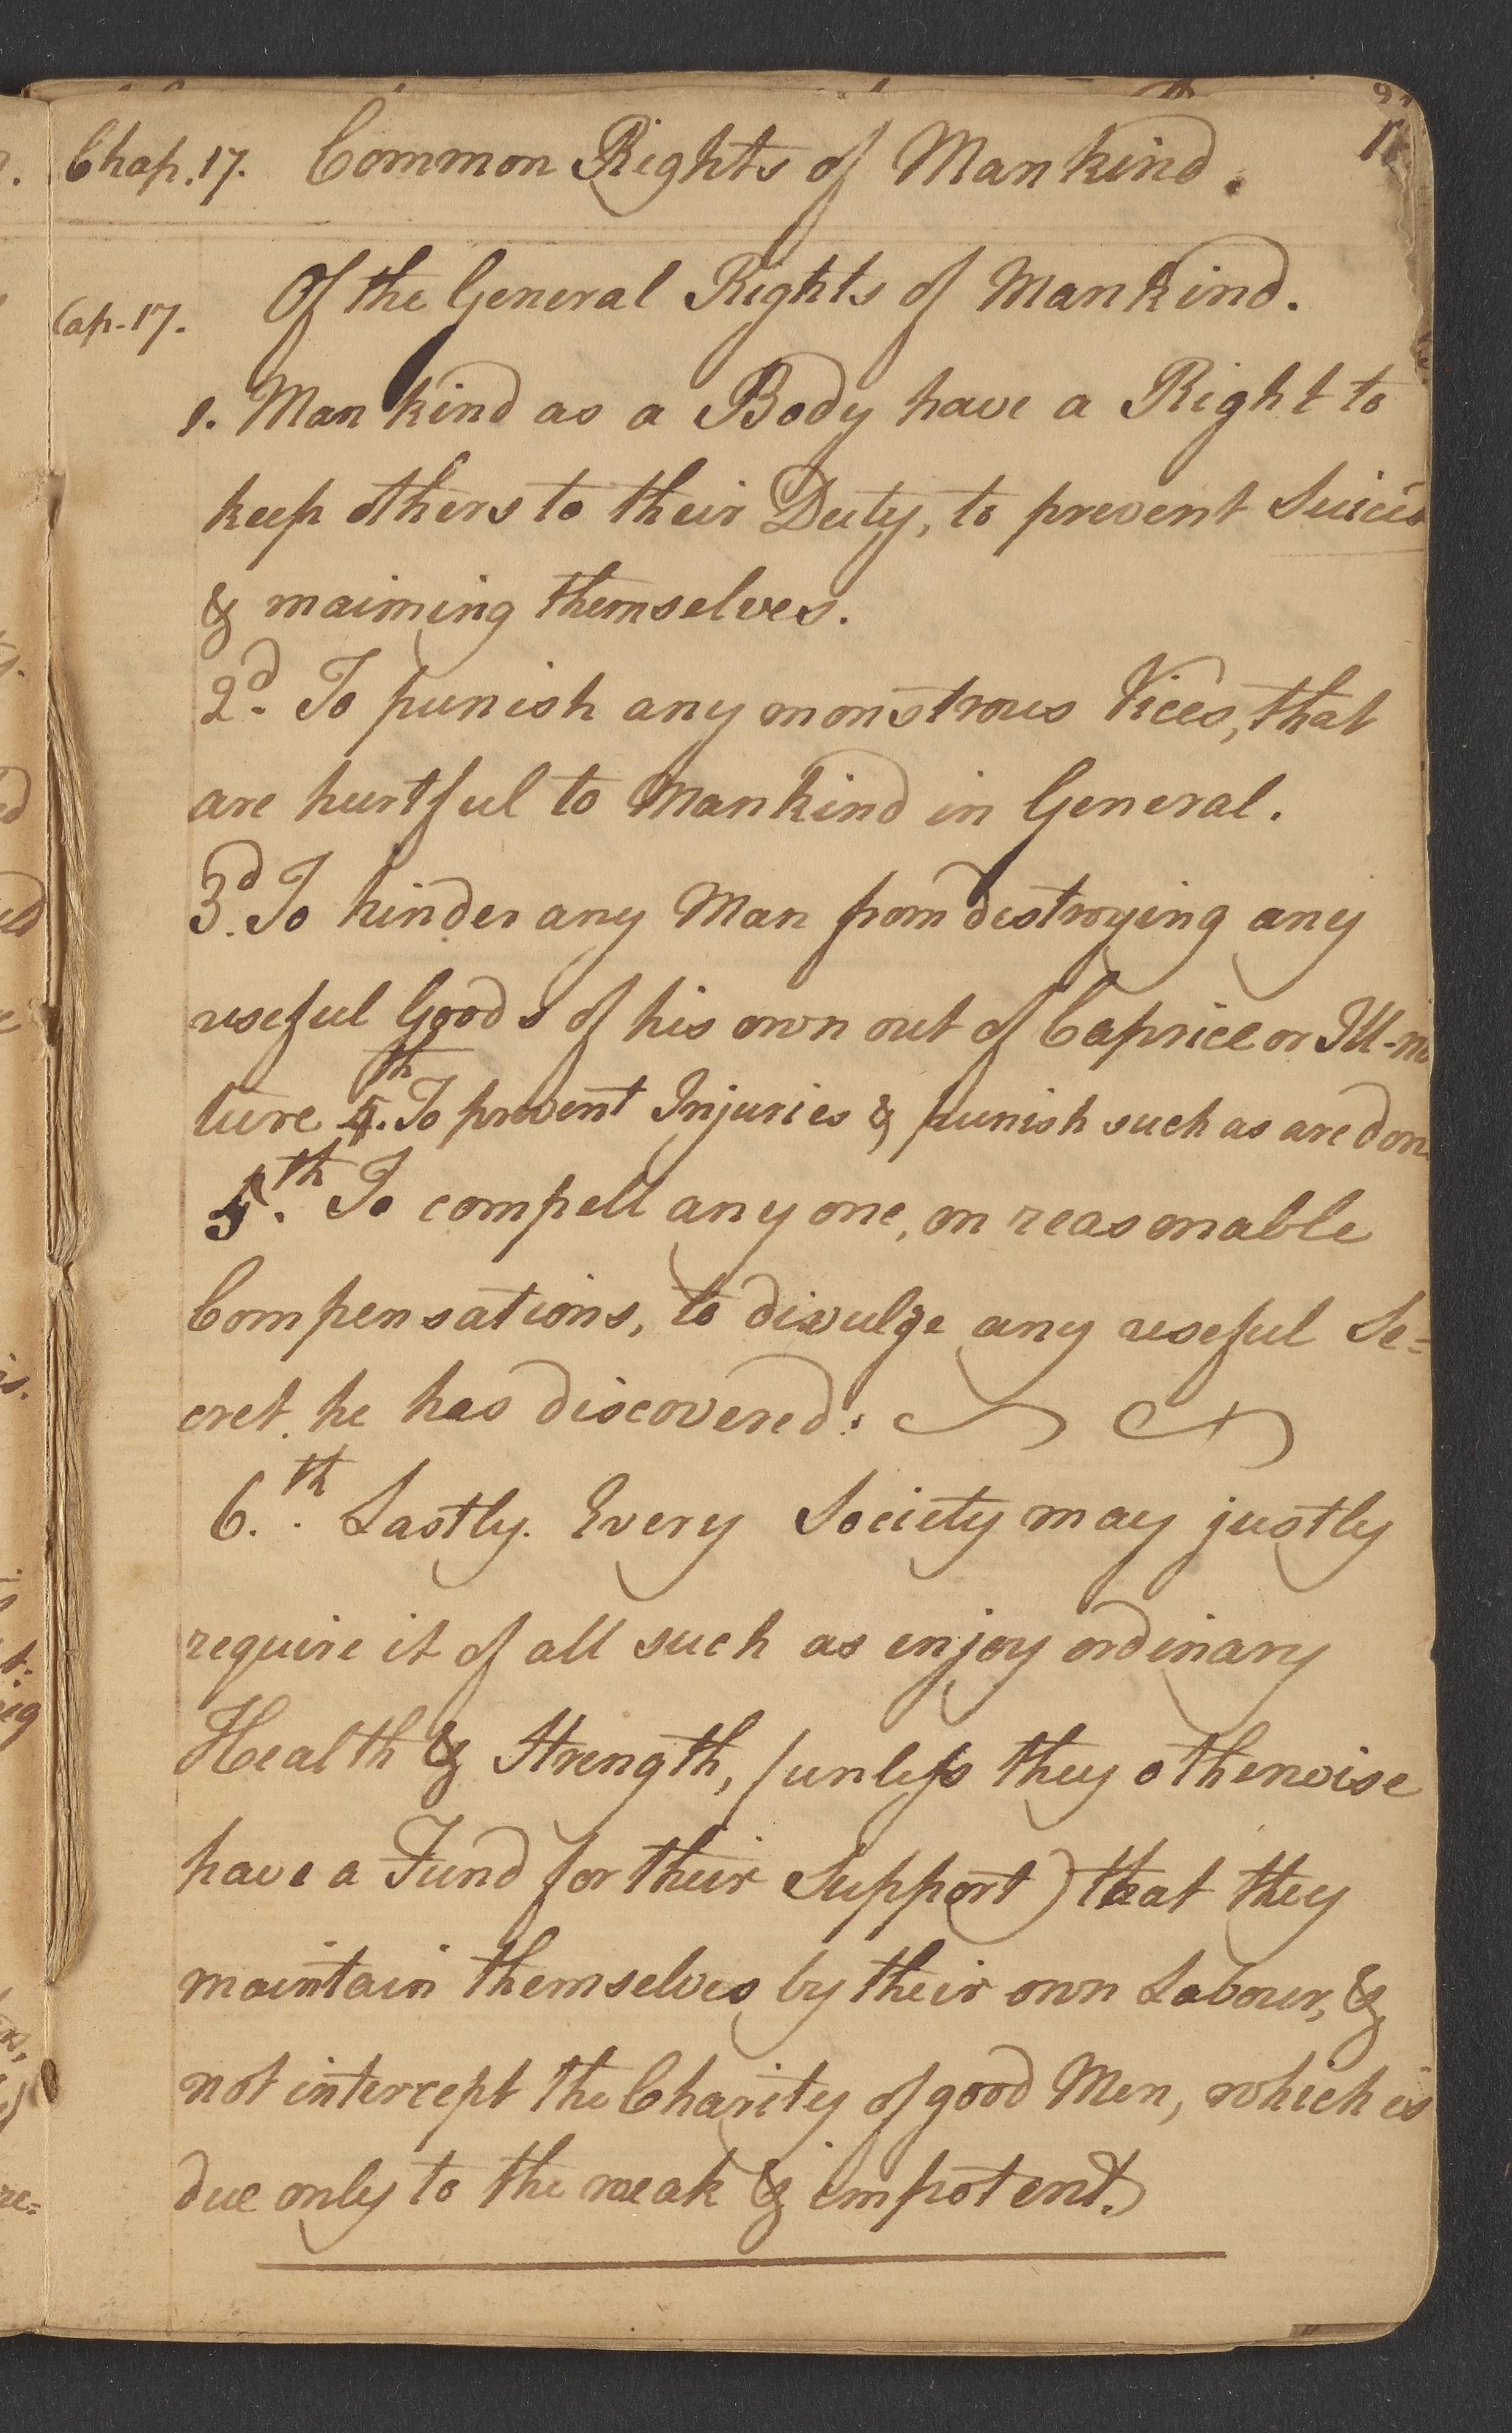 Chap. 17. Common Rights of Mankind.
Cap. 17. Of the General Rights of Mankind.
1. Mankind as a Body have a Right to
keep others to their Duty, to prevent
& maiming themselves.
2d. To punish any monstrous Vices, that
are hurtful to Mankind in General.
3d. To hinder any Man from destroying any
useful Goods of his own out of Caprice or Ill-na
ture 4th. To prevent Injuries & punish such as are don
5th. To compell any one, on reasonable
Compensations, to divulge any useful Se=
cret he has discovered:
6th. Lastly. Every Society may justly
require it of all such as enjoy ordinary
Health & Strength, (unless they otherwise
have a Fund for their Support) that they
maintain themselves by their own Labour, &
not intercept the Charity of good Men, which is
due only to the weak & impotent.